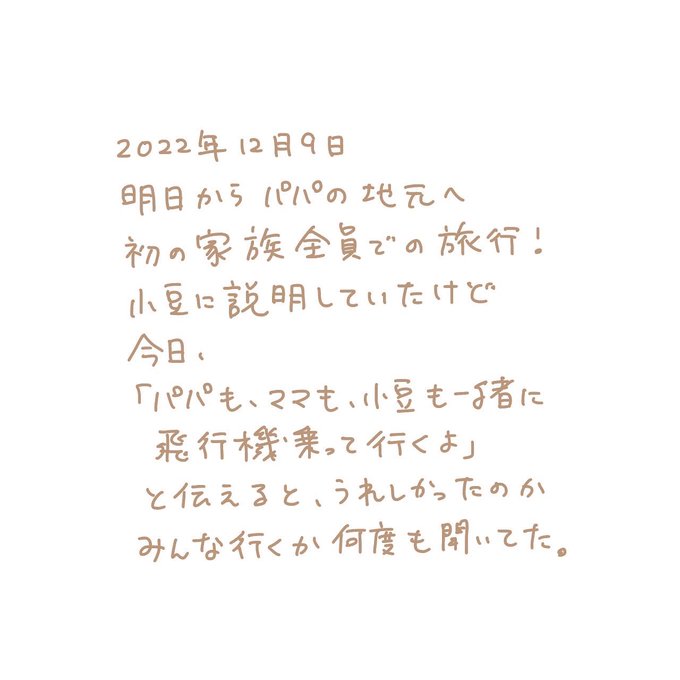 2022年12月9日
明日から パパの 地元へ
初の家族全員での旅行！
小豆に説明していたけど
今日、
「パパも、ママも、小豆も一緒に
飛行機乗って行くよ」
と伝えると、うれしかったのか
みんな行くか何度も聞いてた。